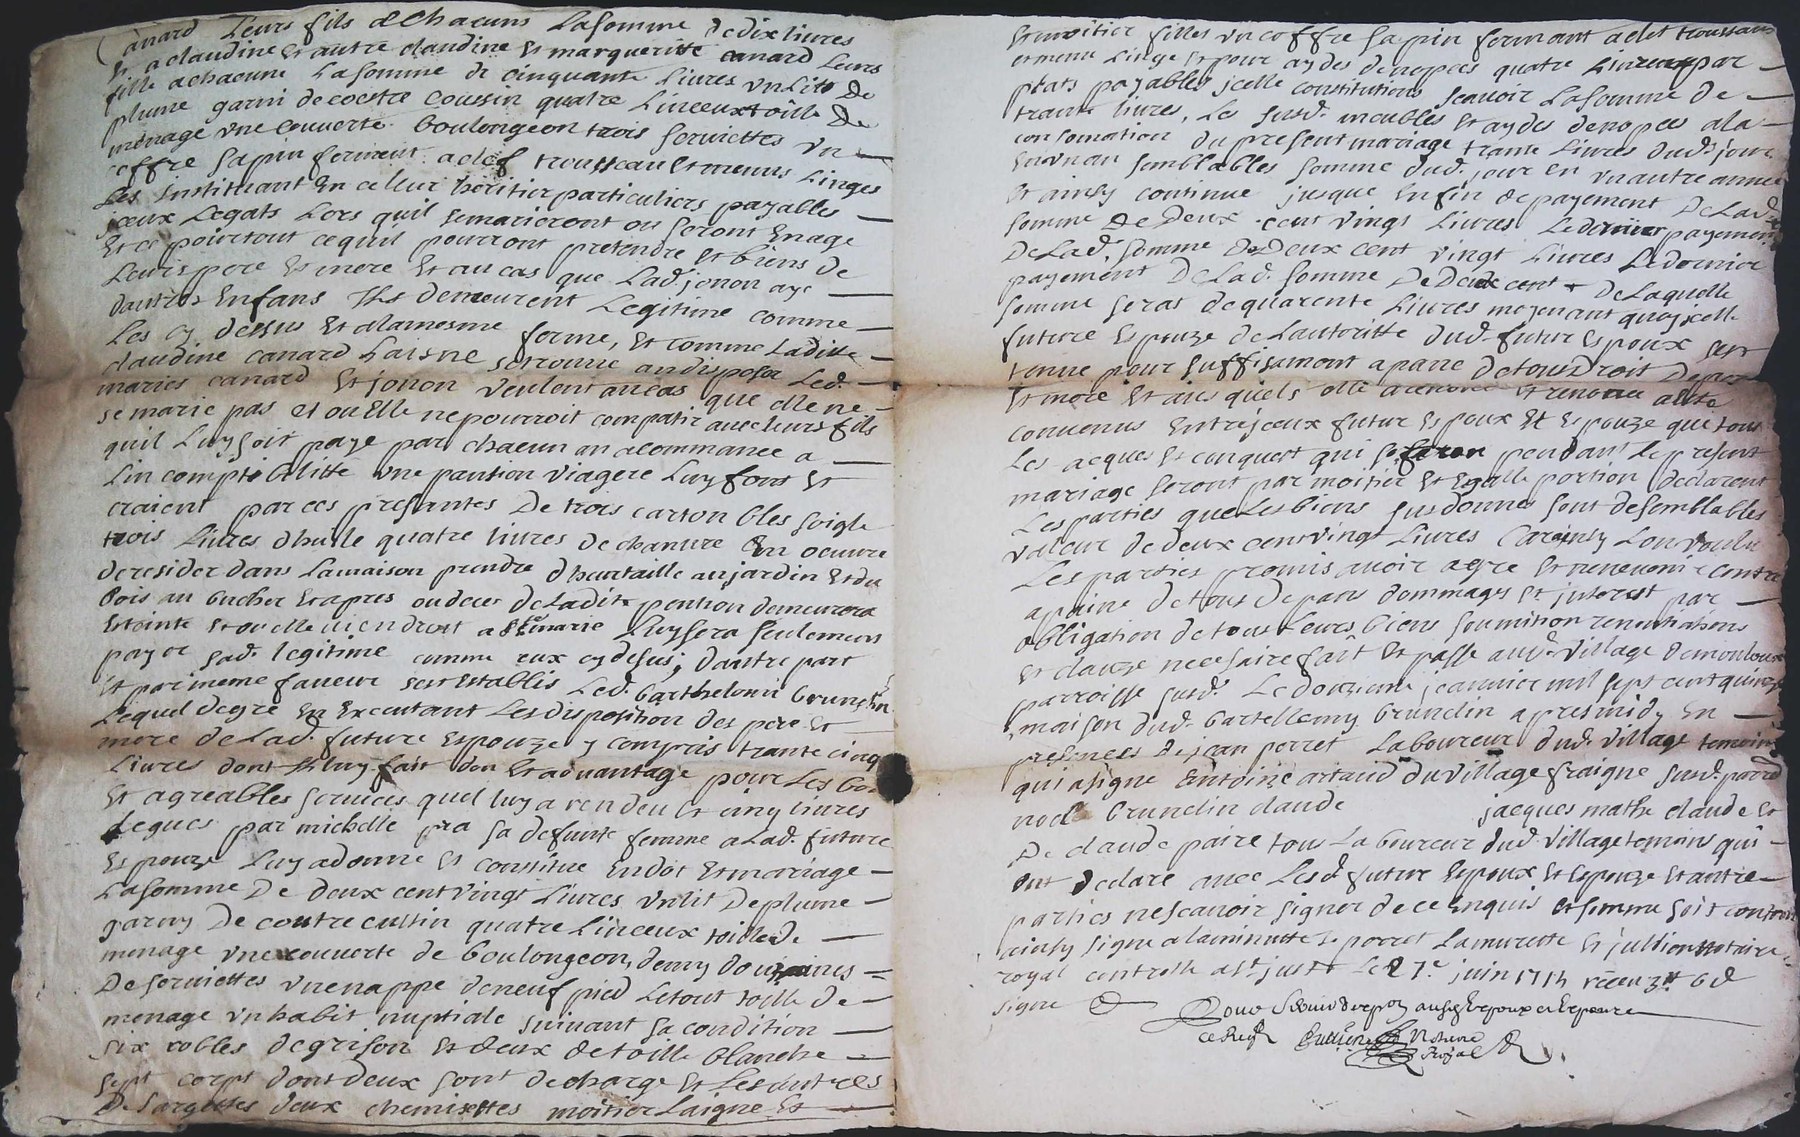 Canard Leurs fils & Chacuns La somme de dix livres
Et a claudine Et autre claudine Et margueritte canard Leurs
fille a chacune La somme de cinquante Livres un Lit de
plume garni de coestre Coussin quatre Linceux toille de
menage une couverte boulongeon trois serviettes un
coffre sapin fermant a clef trousseau Et menus Linges
Les Instituant En ce Leur heritier particuliers payables
jceux Legats Lors quil se marieront ou seront En age
Et ce pour tout ce quil pourront pretendre Et biens de
Leurs pere Et mere Et au cas que Lad. jonon aye
dautres Enfans Ils demeurent Legitime comme
Les cy dessus Et a la mesme forme, Et comme Laditte
claudine canard Laisne se trouve
maries canard Et jonon veulent au cas que elle ne
se marie pas et ou Elle ne pourroit compatir avec Leurs fils
quil Luy soit paye par chacun an a commance a
une pantion viagere Luy font Et
par ces presantes De trois carton bles soigle
trois Livres dhuile quatre livres de chanvre En oeuvre
de resider dans La maison prendre au jardin Et du
bois au bucher Et apres ou deces de Ladite pention demeurera
Estainte Et ou elle viendroit a se marie Luy sera seulement
payer sad. legitime comme eux cy desus; dautre part
Et par meme faveur sest Establis Led. barthelomie brunelin
Lequel de gre En Executant Les disposition des pere Et
mere de Lad. future Espouze y compris trante cinq
Livres dont Il luy fait don Et advantage pour Les bon
Et agreables services quel luy a rendeu Et cinq livres
Legues par michelle pra sa defunte femme a Lad. future
Espouze Luy a donne Et constitue En dot Et mariage
La somme De deux cent vingt Livres un lit De plume
garny De coutre cussin quatre Linceux toille de
menage une couverte de boulongeon, demy douzaines
De serviettes une nappe de neuf pied Le tout toille de
menage un habit nuptiale suivant sa condition
six robbes de grison Et deux de toille blanche
sept corps dont deux sont de charge Et Les autres
De sargettes deux chemisettes moitier Laigne Et
Et moitier filles un coffre sapin fermant a clef troussaux
et menu Linge Et pour aydes de nopces quatre
plats payables jcelle constitutions scavoir La somme De
trante livres, Les susd. meubles Et aydes de nopces a la
consomation du present mariage trante Livres dud. jour
En un an semblables somme dud. jour en un autre annee
Et ainsy continue jusque En fin de payement De Lad.
somme De Deux cent vingt Livres Le dernier payement
De Lad. somme De Deux cent vingt Livres Le dernier
payement De Lad. somme De Deux cent De Laquelle
somme seras de quarente Livres moyenant quoy jcelle
future Espouze de Lautoritte dud. futur Espoux sest
tenue pour suffisament apane De tous Droit De pere
Et mere Et ausquels elle a renonce Et renonce a este
convenus Entre jceux futur Espoux Et Espouze que tous
Les acques Et conquest qui se feron pendant Le present
mariage seront par moitier Et Egalle portion declarent
Les parties que Les biens susdonnes sont de semblables
valeur de deux cent vingt Livres Car ainsy Lon voulu
Les parties promis avoir agre Et ne venir contre
a paine de tous Depans dommages Et jnterest par
obligation de tous Leurs biens soumition renontiations
Et clauze necessaire fait Et passe aud. village
parroisse susd. Le douzieme jeanvier mil sept cent quinze
maison dud. bartellemy brunelin apres midy En
presences De jean porret Laboureur dud. village temoin
qui a signe Entoine artaud du village fraigne susd. parr.
noel brunelin claude jacques mathe claude Et
De claude paire tous Laboureur dud. village temoins qui
ont declare avec Lesd. futur Espoux Et Espouze Et autre
parties ne scavoir signer de ce Enquis
ainsy signe a la minutte j. porret Lamurette Et jullien notaire
royal controlle a st just Le 27e juin 1714 receu 3ll 6d
signe
Pour
Notaire
Royal